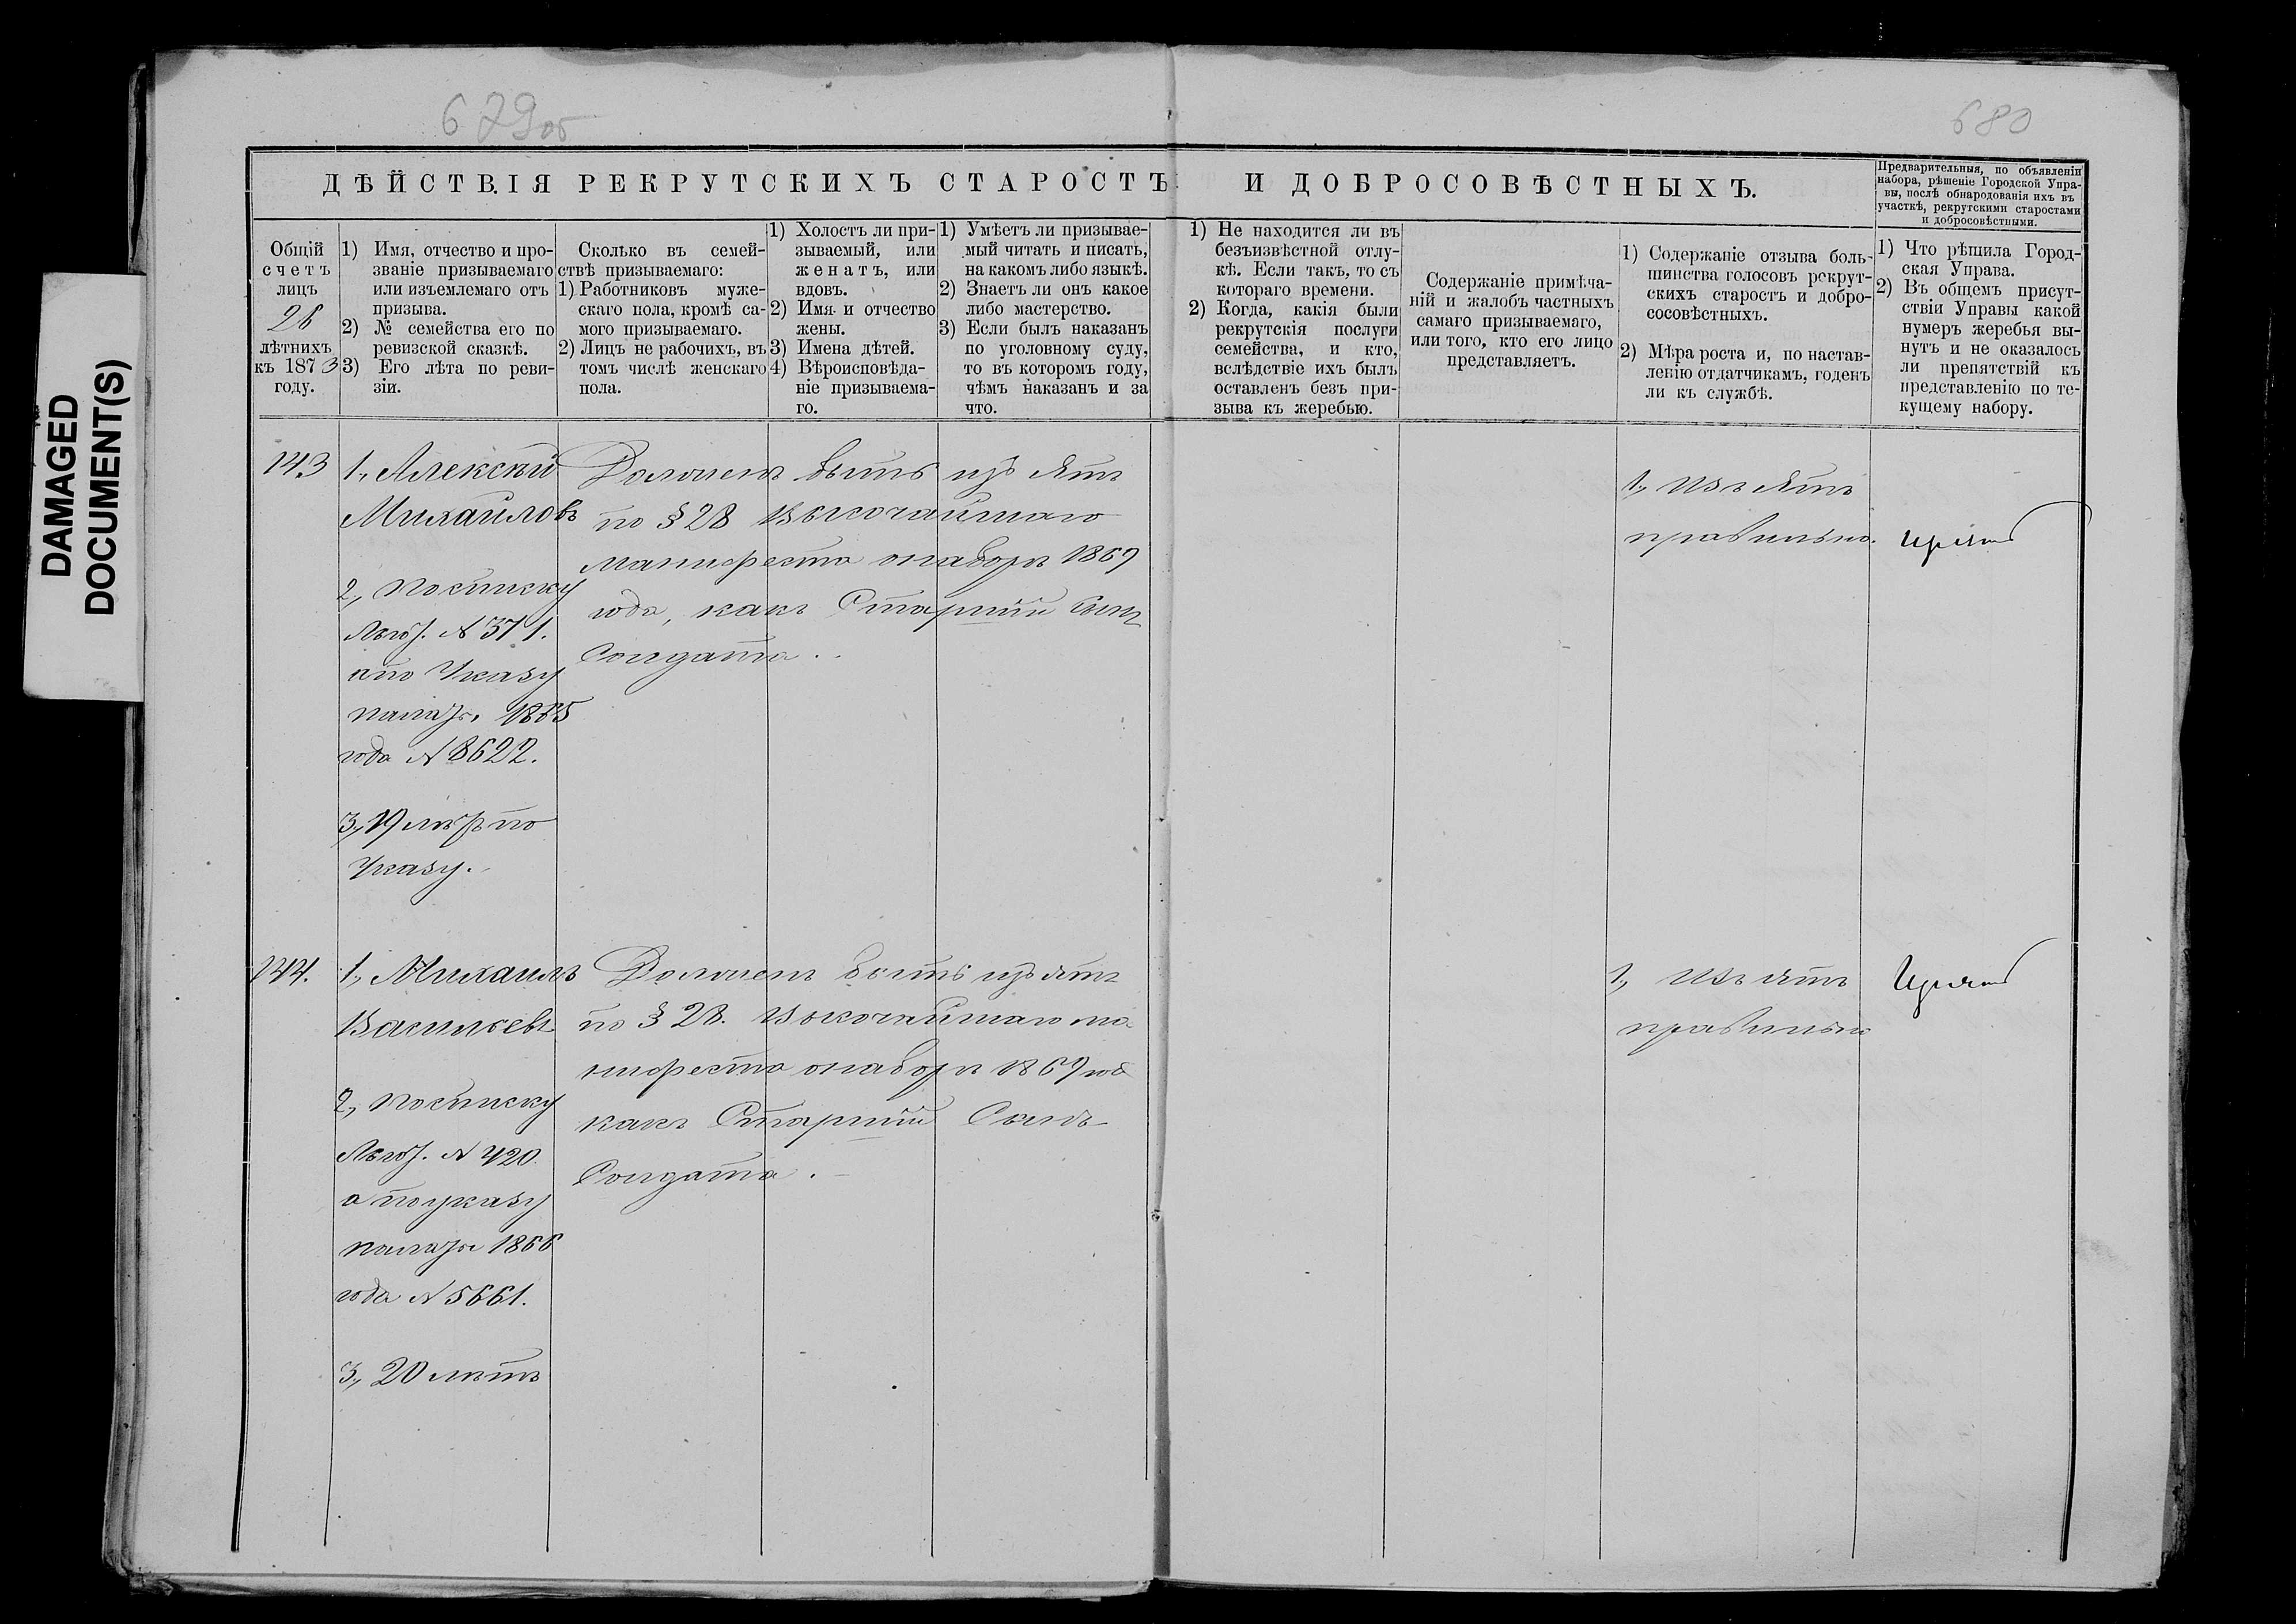 DAMAGED
DOCUMENT(S)
679об
680
ДѢЙСТВІЯ РЕКРУТСКИХЪ СТАРОСТЪ И ДОБРОСОВѢСТНЫХЪ.
Предварительныя, по объявленіи
набора, рѣшеніе Городской Упра-
вы, послѣ обнародованія ихъ въ
участкѣ, рекрутскими старостами
и добросовѣстными.
Общій
счетъ
лицъ
26
лѣтнихъ
къ 1873
году.
1) Имя, отчество и про-
званіе призываемаго
или изъемлемаго отъ
призыва.
2) № семейства его по
ревизской сказкѣ.
3) Его лѣта по реви-
зіи.
Сколько въ семей-
ствѣ призываемаго:
1) Работниковъ муже-
скаго пола, кромѣ са-
мого призываемаго.
2) Лицъ не рабочихъ, въ
томъ числѣ женскаго
пола.
1) Холостъ ли при-
зываемый, или
женатъ, или
вдовъ.
2) Имя и отчество
жены.
3) Имена дѣтей.
4) Вѣроисповѣда-
ніе призываема-
го.
1) Умѣетъ ли призывае-
мый читать и писать,
на какомъ либо языкѣ.
2) Знаетъ ли онъ какое
либо мастерство.
3) Если былъ наказанъ
по уголовному суду,
то въ которомъ году,
чѣмъ наказанъ и за
что.
1) Не находится ли въ
безъизвѣстной отлу-
кѣ. Если такъ, то съ
котораго времени.
2) Когда, какія были
рекрутскія послуги
семейства, и кто,
вслѣдствіе ихъ былъ
оставленъ безъ при-
зыва къ жеребью.
Содержаніе примѣча-
ній и жалобъ частныхъ
самаго призываемаго,
или того, кто его лицо
представляетъ.
1) Содержаніе отзыва боль-
шинства голосовъ рекрут-
скихъ старостъ и добро-
сосовѣстныхъ.
2) Мѣра роста и, по настав-
ленію отдатчикамъ, годенъ
ли къ службѣ.
1) Что рѣшила Город-
ская Управа.
2) Въ общемъ присут-
ствіи Управы какой
нумеръ жеребья вы-
нутъ и не оказалось
ли препятствій къ
представленію по те-
кущему набору.
143
1., Алексѣй
Михаиловъ
2., по списку
Льгот. № 371.
а по Указу
палаты 1865
года № 8622.
3., 19 лѣтъ по
Указу.
Долженъ быть изъятъ
по § 28 Высочайшаго
манифеста о наборѣ 1869
года, какъ Старшій Сынъ
Солдата.
1., Изъятъ
правильно.
144.
1., Михаилъ
Васильевъ
2., по списку
Льгот. № 420.
а по указу
палаты 1866
года № 5661.
3., 20 лѣтъ
Долженъ быть изъятъ
по § 28. Высочайшаго ма-
нифеста о наборѣ 1869 год
какъ Старшій Сынъ
Солдата.
1., Изъятъ
правильно